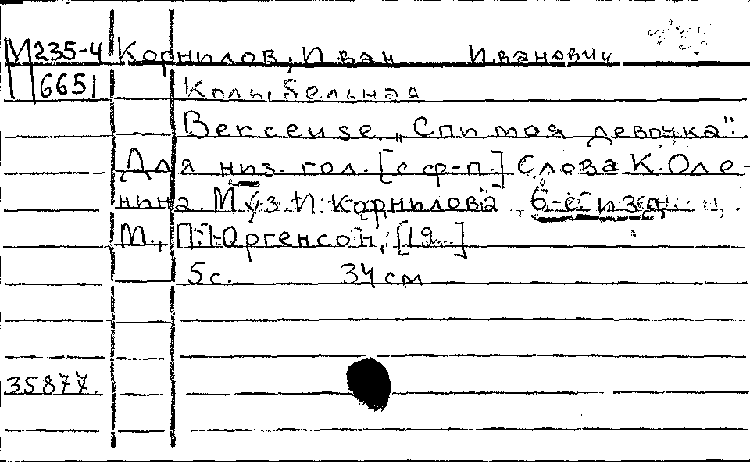 М235-4 Корнилов, Иван Иванович
6651 Колыбельная
Berceuse „Спи моя девочка".
Для низ. гол. [с ф-п.] Слова К. Оле-
нина. Муз. И. Корнилова. 6-е изд.
М., П. Юргенсон, [19...]
5 с. 34 см
35877.